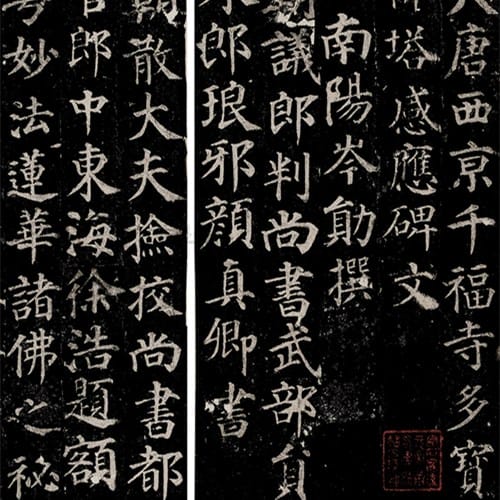 大唐西亰千福寺多寶
佛塔感應碑文
南陽岑勛撰
朝議郎判尚書武部員
外郎琅邪顏真卿書
朝散大夫撿校尚書都
官郎中東海徐浩題額
粵妙法蓮華諸佛之祕